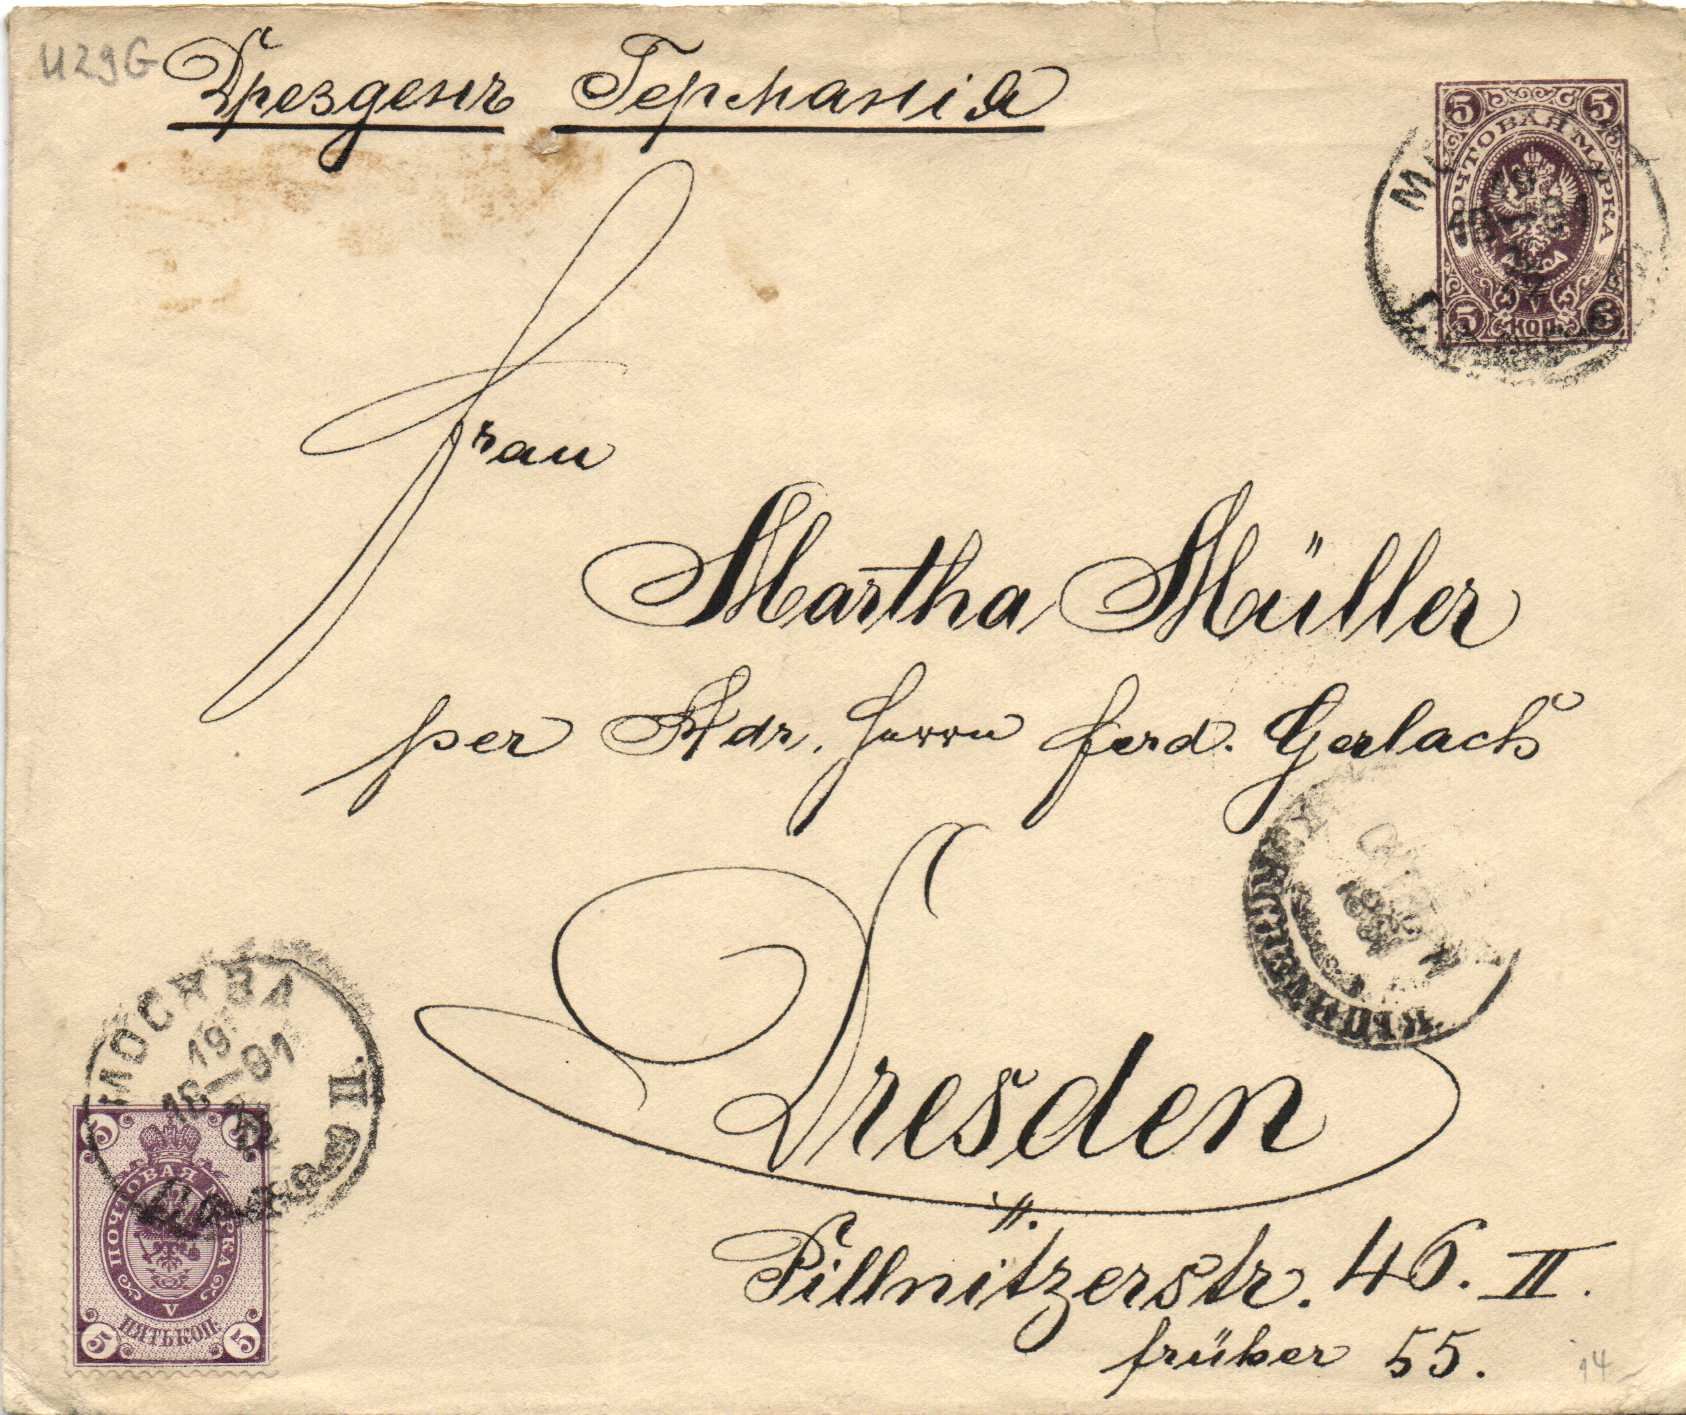 U29G
Дрезденъ Германія
5 5
ПОЧТОВАЯ МАРКА
5 КОП. 5
Frau
Martha Müller
per Adr. Herrn Ferd. Gerlach
Dresden
Pillnitzerstr. 46. II.
früher 55.
МОСКВА
19
16 91
II
5 5
ПОЧТОВАЯ МАРКА
V
5 ПЯТЬ КОП. 5
14